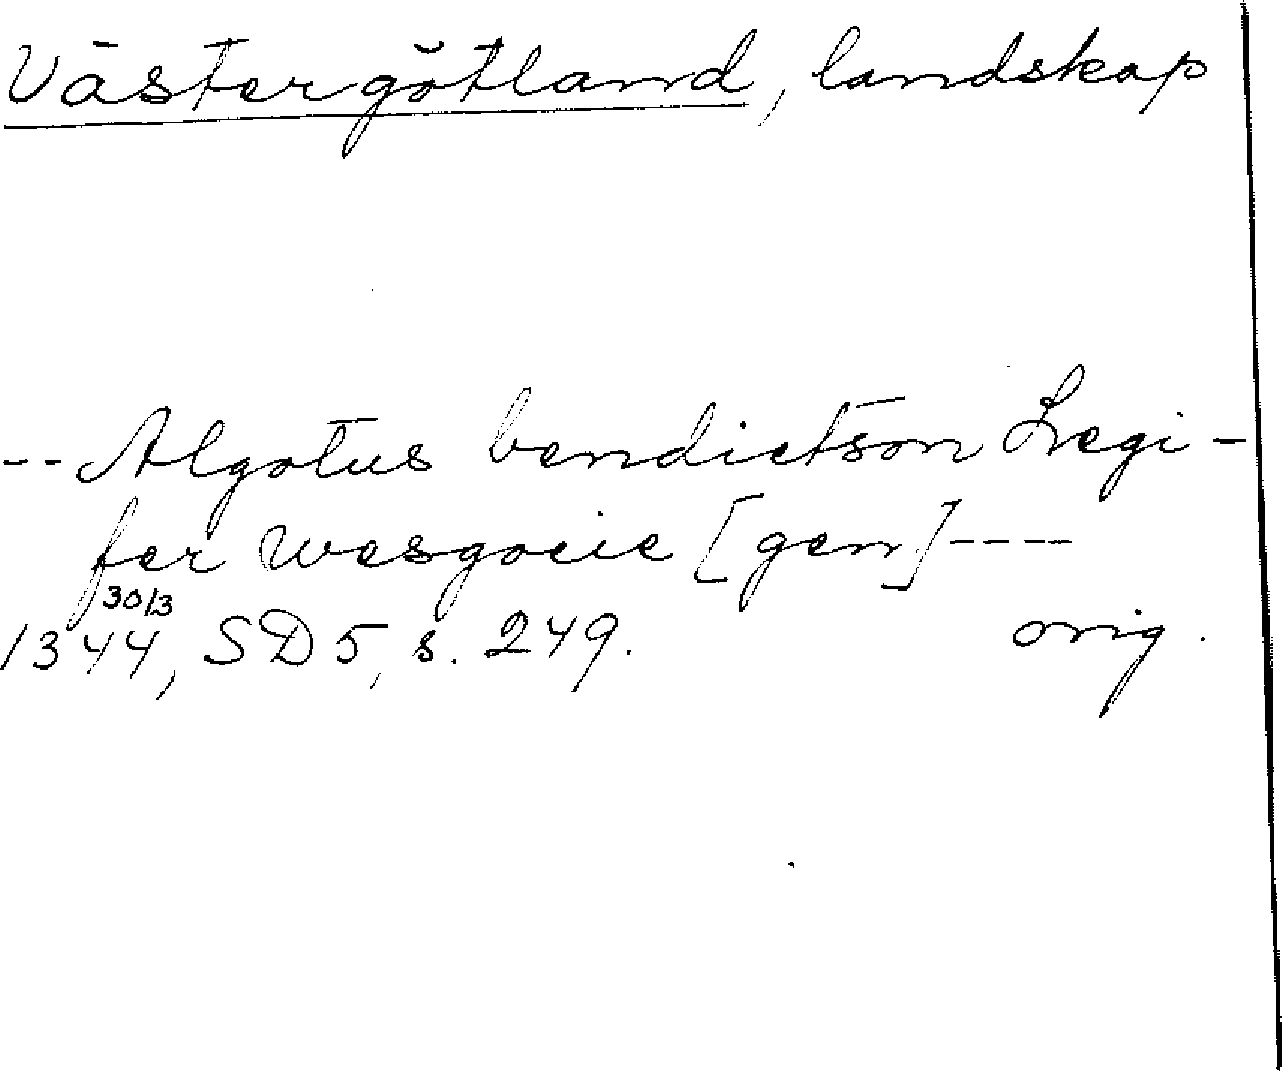 Västergötland, landskap
-- Algotus bendictson Legi-
fer wesgocie [gen] ----
30/3
1344, SD 5, s. 249. orig.